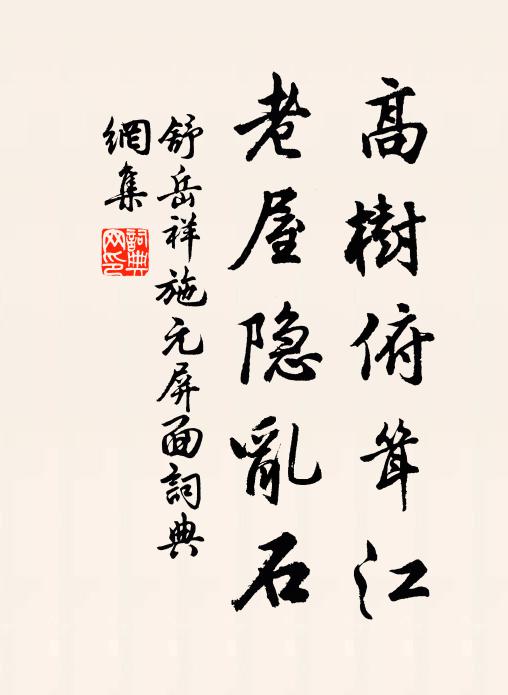 高樹俯茸江
老屋隐亂石
舒岳祥施元屏面詞典
網集
詞典网印